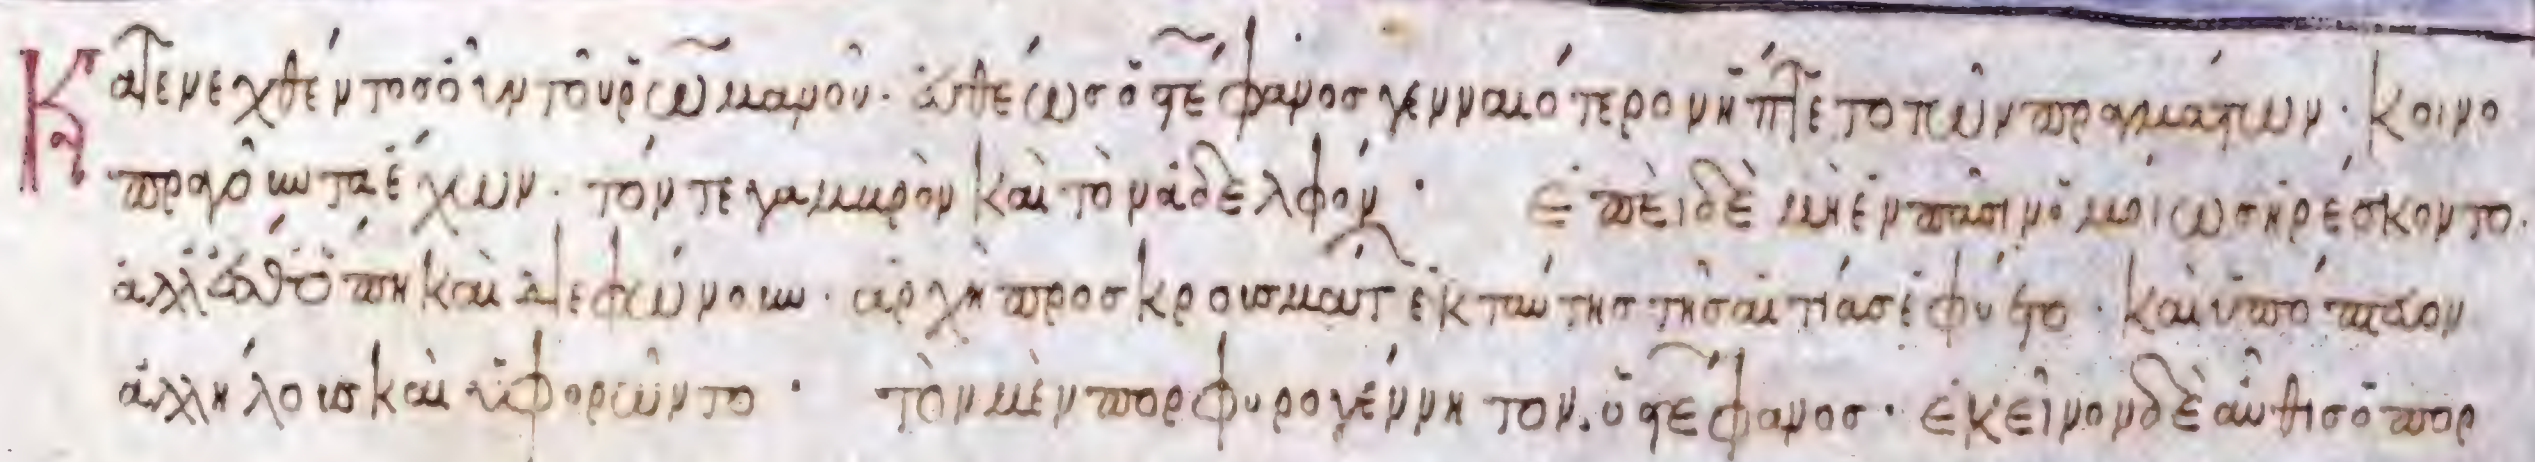 Κατενεχθέντος οὖν τοῦ ῥωμανοῦ. ἀνθέως ὁ στέφανος γενναιότερον ἥπτετο τῶν πραγμάτων. κοινο
πραγοῦντα ἔχων. τόν τε γαμβρὸν καὶ τὸν ἀδελφόν. ἐπεὶ δὲ μὴ ἐν πᾶσιν ὁμοίως ἠρέσκοντο.
ἀλλ' ἔσθ' ὅπη καὶ διεφώνουν. ἀρχὴ προσκρουσμάτων ἐκ ταύτης τῆς αἰτίας ἐφύετο. καὶ ὕποπτον
ἀλλήλους καὶ ὑφορῶντο. τὸν μὲν πορφυρογέννητον, ὁ στέφανος. ἐκεῖνον δὲ αὖθις ὁ πορ